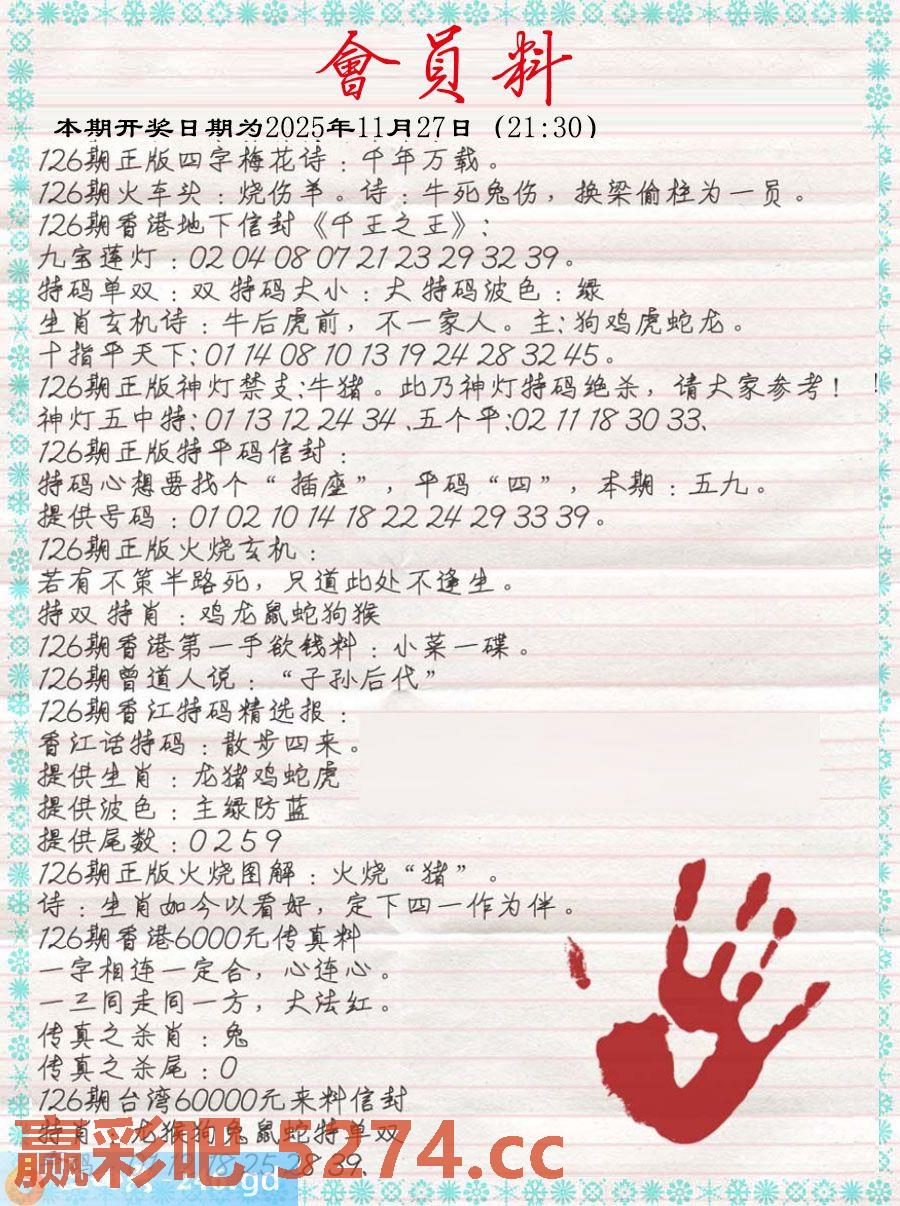 會員料
本期开奖日期为2025年11月27日（21:30）
126期正版四字梅花诗：千年万载。
126期火车头：烧伤羊。诗：牛死兔伤，换梁偷柱为一员。
126期香港地下信封《千王之王》：
九宝莲灯：02 04 08 07 21 23 29 32 39。
特码单双：双 特码大小：大 特码波色：绿
生肖玄机诗：牛后虎前，不一家人。主：狗鸡虎蛇龙。
十指平天下：01 14 08 10 13 19 24 28 32 45。
126期正版神灯禁支：牛猪。此乃神灯特码绝杀，请大家参考！！
神灯五中特：01 13 12 24 34、五个平：02 11 18 30 33、
126期正版特平码信封：
特码心想要找个“插座”，平码“四”，本期：五九。
提供号码：01 02 10 14 18 22 24 29 33 39。
126期正版火烧玄机：
若有不策半路死，只道此处不逢生。
特双 特肖：鸡龙鼠蛇狗猴
126期香港第一手欲钱料：小菜一碟。
126期曾道人说：“子孙后代”
126期香江特码精选报：
香江话特码：散步四来。
提供生肖：龙猪鸡蛇虎
提供波色：主绿防蓝
提供尾数：0 2 5 9
126期正版火烧图解：火烧“猪”。
诗：生肖如今以看好，定下四一作为伴。
126期香港6000元传真料
一字相连一定合，心连心。
一三同走同一方，大法红。
传真之杀肖：兔
传真之杀尾：0
126期台湾60000元来料信封
特肖：龙猴狗兔鼠蛇特单双
赢彩吧5274.cc
28 39、